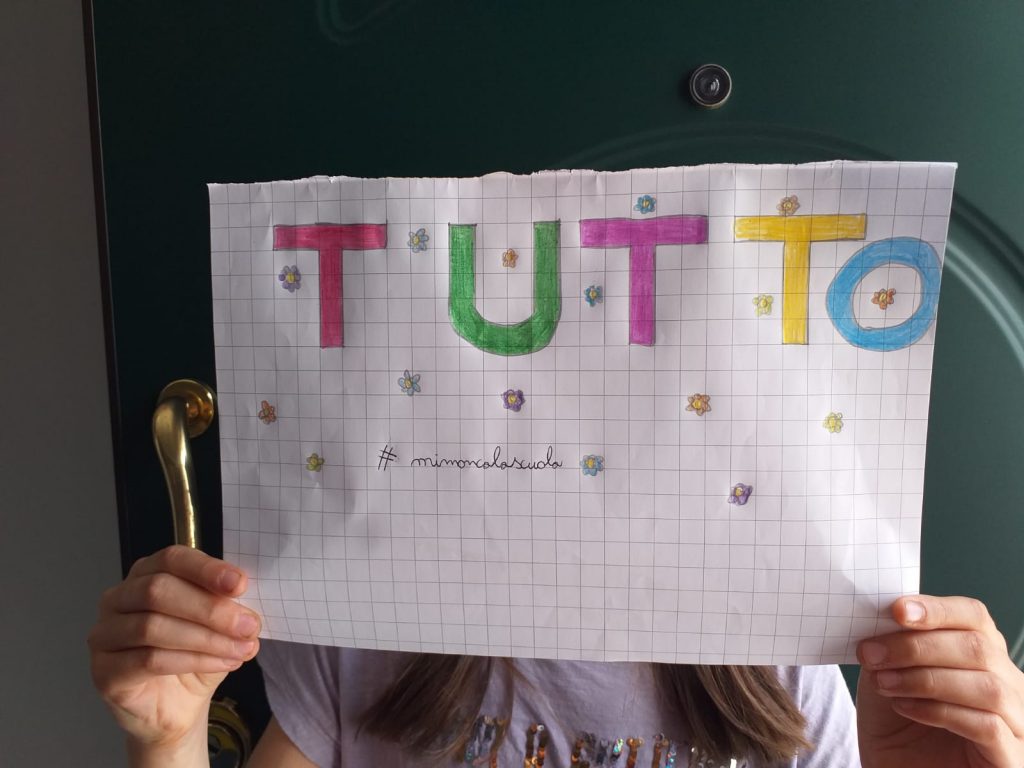 TUTTO
# mimancalascuola